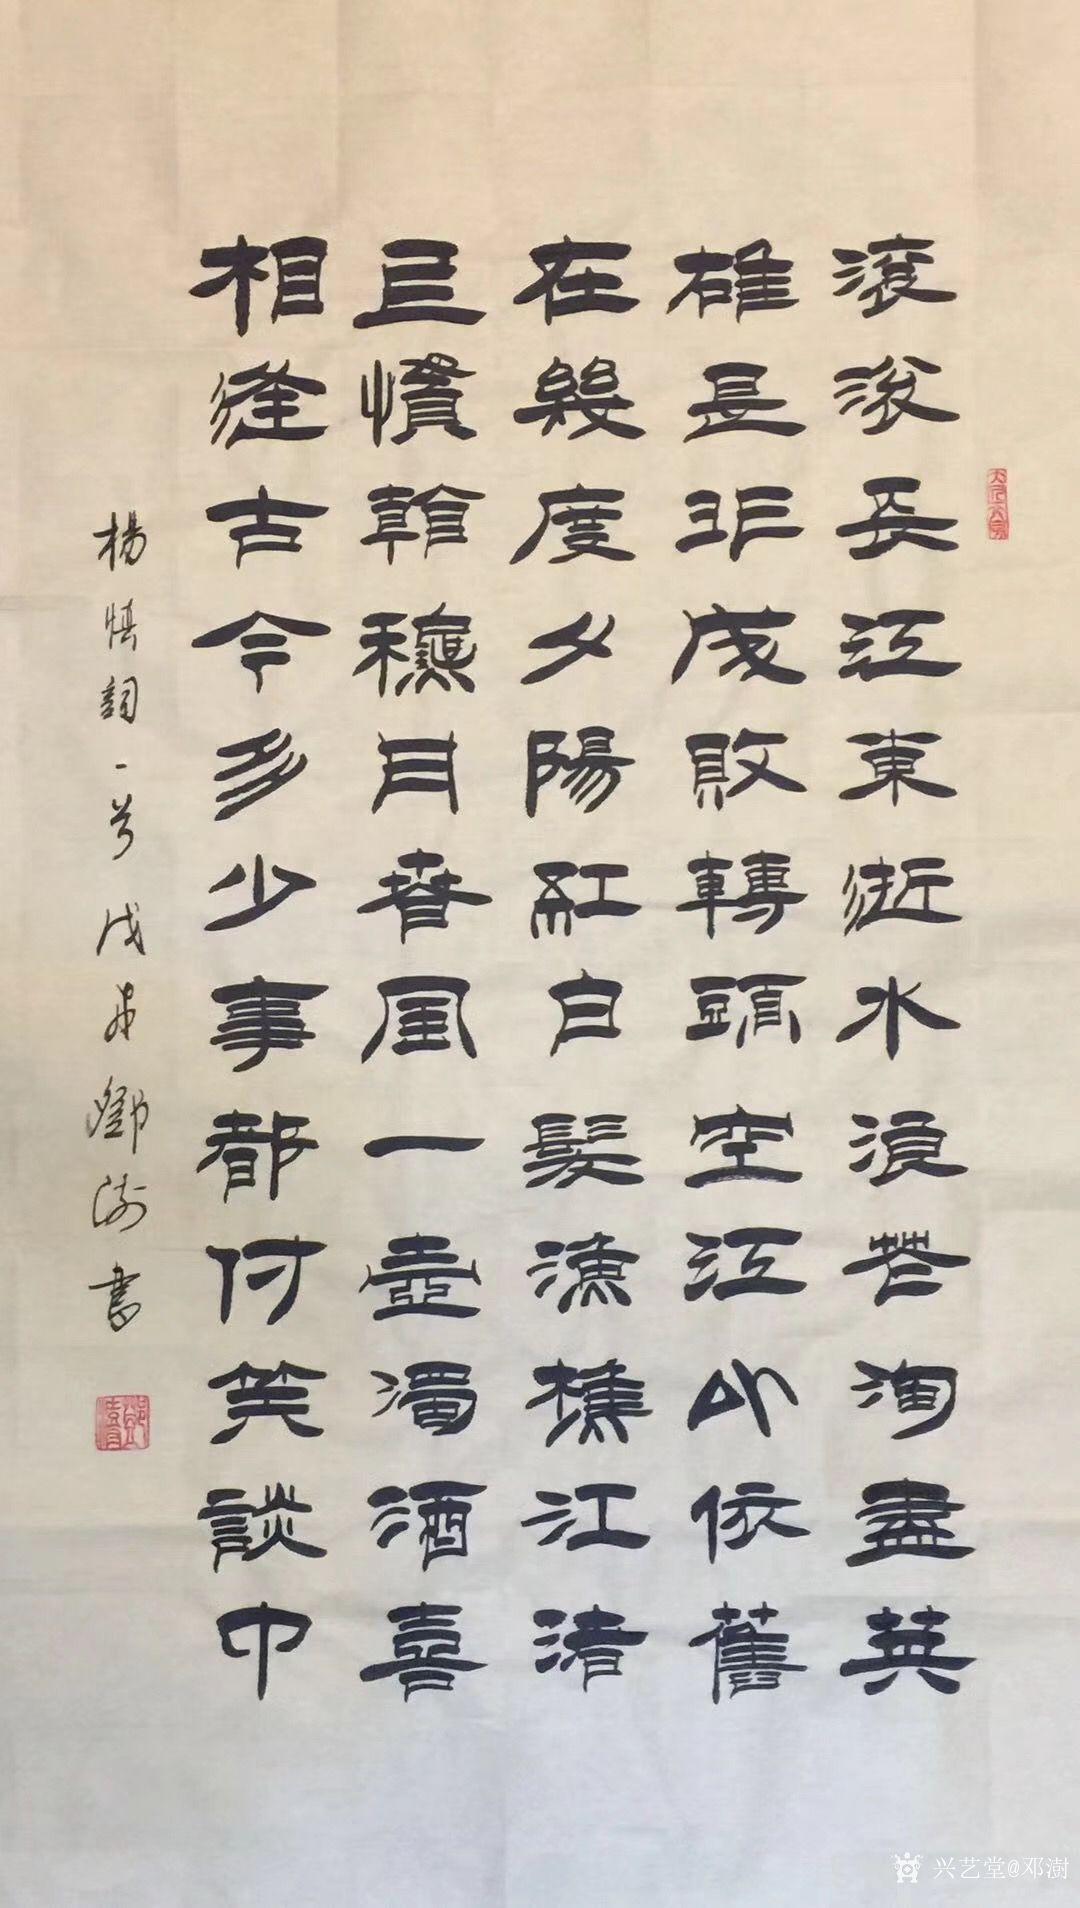 滚滚長江東逝水浪花淘盡英
雄是非成敗轉頭空江山依舊
在幾度夕陽紅白髮漁樵江渚
上慣看秋月春風一壺濁酒喜
相逢古今多少事都付笑談中
楊慎詞一首 戊戌 鄧澍書
兴艺堂@邓澍